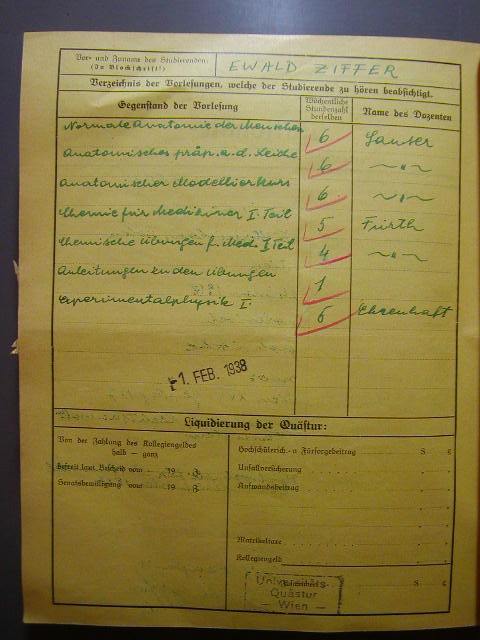 Vor- und Zuname des Studierenden:
(In Blockschrift!)
EWALD ZIFFER
Verzeichnis der Vorlesungen, welche der Studierende zu hören beabsichtigt.
Gegenstand der Vorlesung
Wöchentliche Stundenzahl derselben
Name des Dozenten
Normale Anatomie der Menschen 6
Anatomisches präp. a. d. Leiche 6 ~"~
Anatomischer Modellierkurs 6 ~"~
Chemie für Mediziner I. Teil 5 Fürth
Chemische Übungen f. Med. I Teil 4 ~"~
Anleitungen zu den Übungen 1
Experimentalphysik I. 6 Ehrenhaft
1. FEB. 1938
Liquidierung der Quästur:
Von der Zahlung des Kollegiengeldes
halb — ganz
befreit laut Bescheid vom 19
Senatsbewilligung vom 19
Hochschülersch.- u. Fürsorgebeitrag S g
Unfallversicherung
Aufwandsbeitrag
Matrikeltaxe
Kollegiengeld
S g
Universitäts-
Quästur
— Wien —